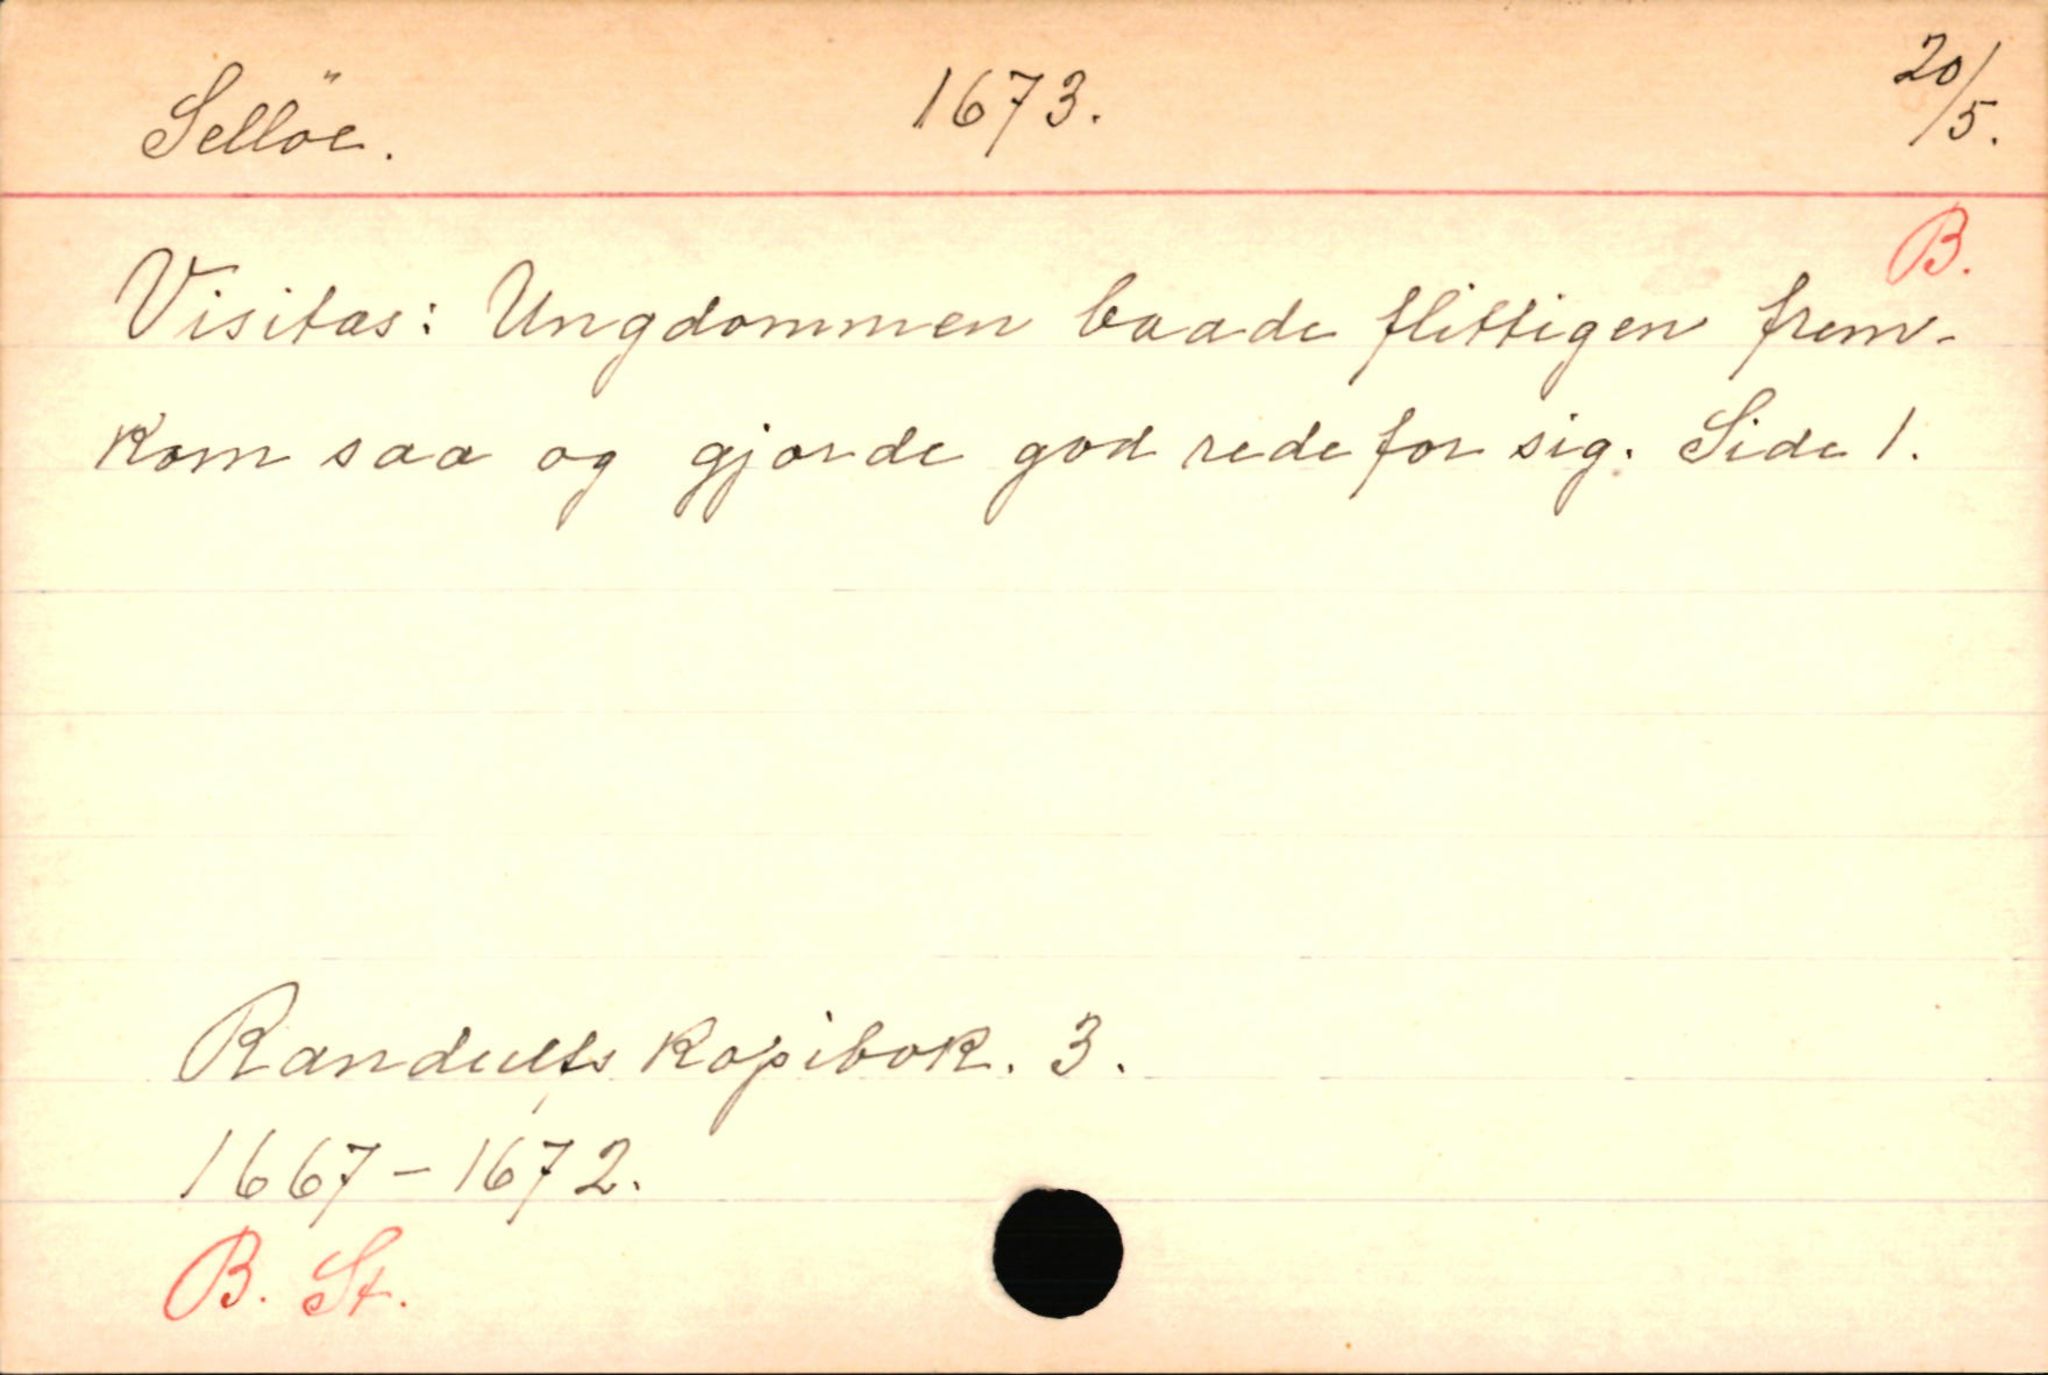 Selløe. 1673. 20/5.
B.
Visitas: Ungdommen baade flittigen frem-
kom saa og gjorde god rede for sig. Side 1.
Randulfs kopibok. 3.
1667-1672.
B. St.